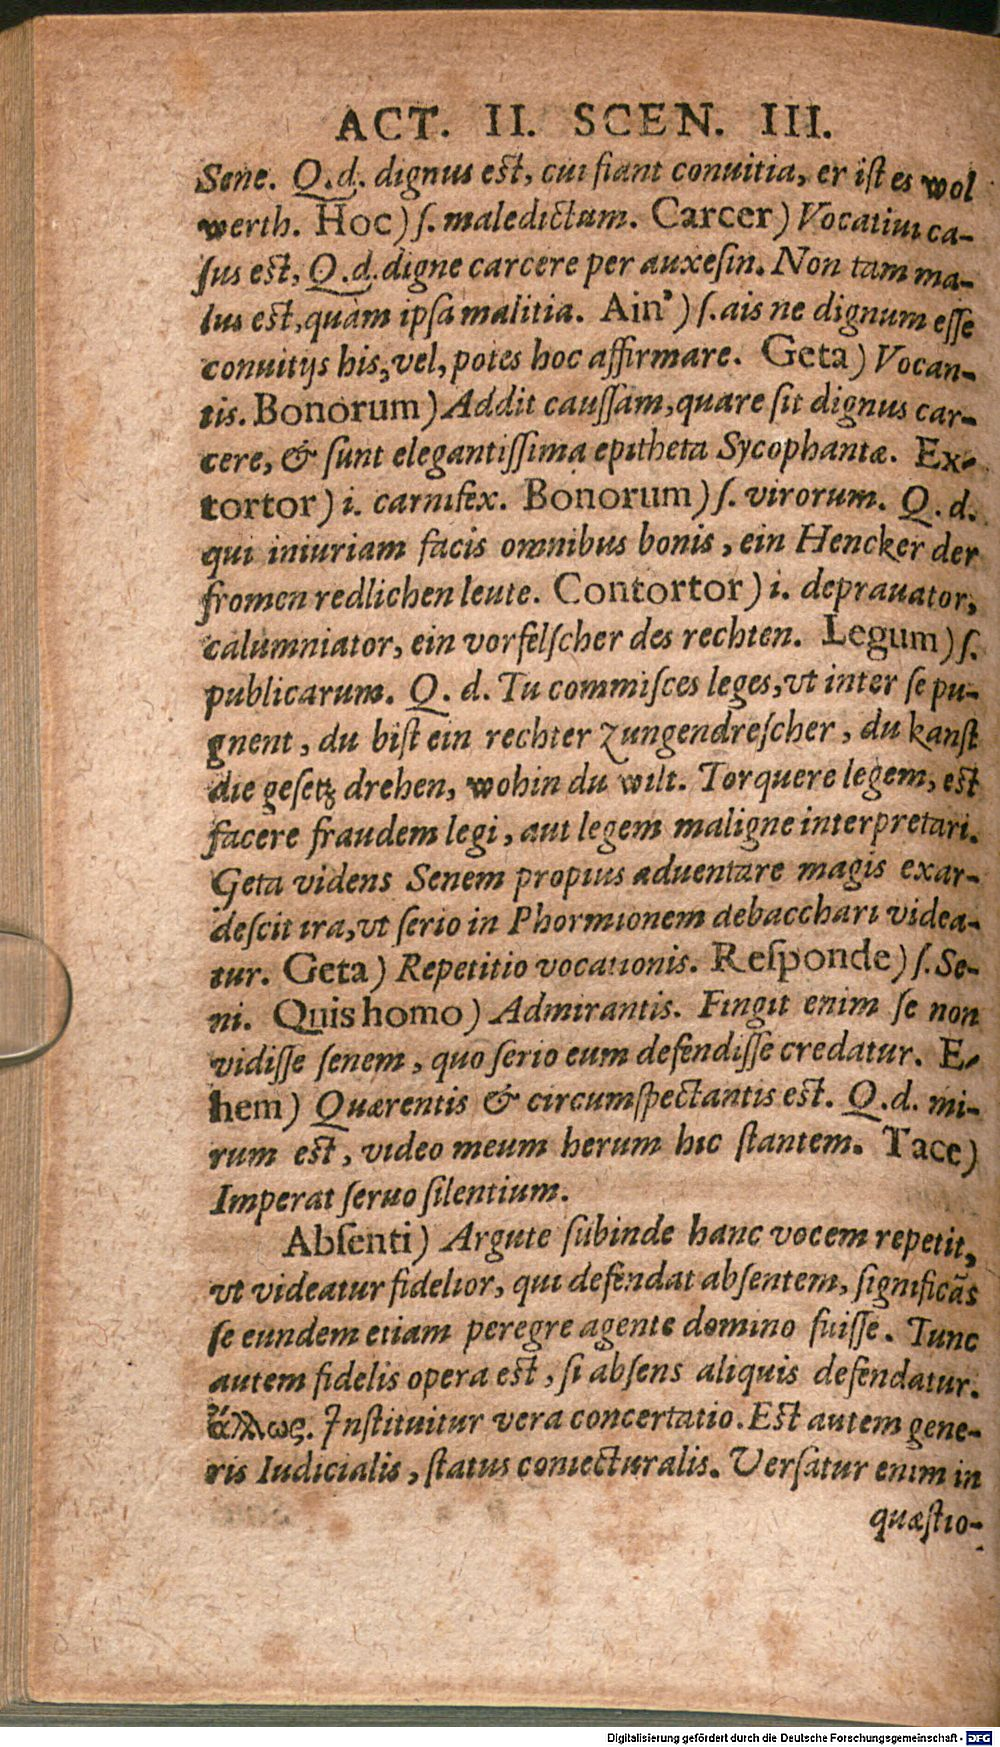 ACT. II. SCEN. III.
Sene. Q.d. dignus eſt, cui fiant conuitia, er iſt es wol
werth. Hoc) ſ. maledictum. Carcer) Vocatiui ca-
ſus eſt, Q.d. digne carcere per auxeſin. Non tam ma-
lus eſt, quàm ipſa malitia. Ain') ſ. ais ne dignum eſſe
conuitijs his, vel, potes hoc affirmare. Geta) Vocan-
tis. Bonorum) Addit cauſſam, quare ſit dignus car-
cere, & ſunt elegantiſſima epitheta Sycophantæ. Ex-
tortor) i. carnifex. Bonorum) ſ. virorum. Q. d.
qui iniuriam facis omnibus bonis, ein Hencker der
fromen redlichen leute. Contortor) i. deprauator,
calumniator, ein vorfelſcher des rechten. Legum) ſ.
publicarum. Q. d. Tu commiſces leges, vt inter ſe pu-
gnent, du biſt ein rechter Zungendreſcher, du kanſt
die geſetz drehen, wohin du wilt. Torquere legem, eſt
facere fraudem legi, aut legem maligne interpretari.
Geta videns Senem propius aduentare magis exar-
deſcit ira, vt ſerio in Phormionem debacchari videa-
tur. Geta) Repetitio vocationis. Reſponde) ſ. Se-
ni. Quis homo) Admirantis. Fingit enim ſe non
vidiſſe ſenem, quo ſerio eum defendiſſe credatur. E-
hem) Quærentis & circumſpectantis eſt. Q.d. mi-
rum eſt, video meum herum hic ſtantem. Tace)
Imperat ſeruo ſilentium.
Abſenti) Argute ſubinde hanc vocem repetit,
vt videatur fidelior, qui defendat abſentem, ſignificãs
ſe eundem etiam peregre agente domino fuiſſe. Tunc
autem fidelis opera eſt, ſi abſens aliquis defendatur.
ἄλλως. Inſtituitur vera concertatio. Eſt autem gene-
ris Iudicialis, ſtatus coniecturalis. Verſatur enim in
quæſtio-
Digitalisierung gefördert durch die Deutsche Forschungsgemeinschaft - DFG